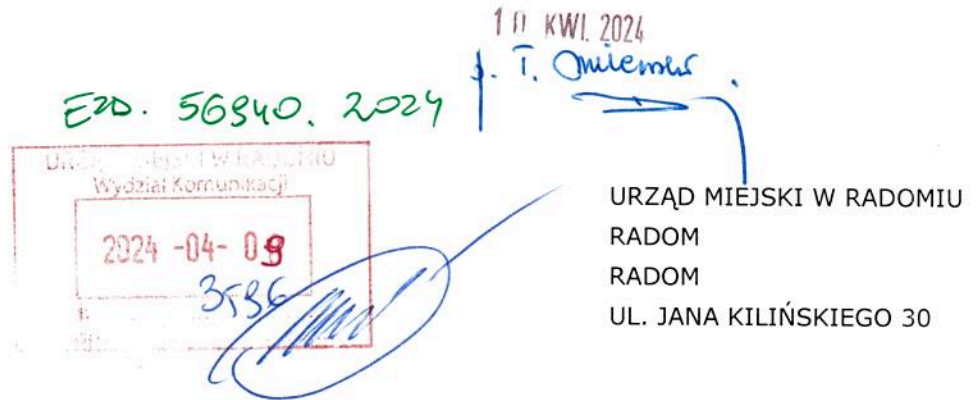 10 KWI. 2024
p. T.
EZD. 56940. 2024
URZĄD MIEJSKI W RADOMIU
Wydział Komunikacji
2024 -04- 09
3596
URZĄD MIEJSKI W RADOMIU
RADOM
RADOM
UL. JANA KILIŃSKIEGO 30